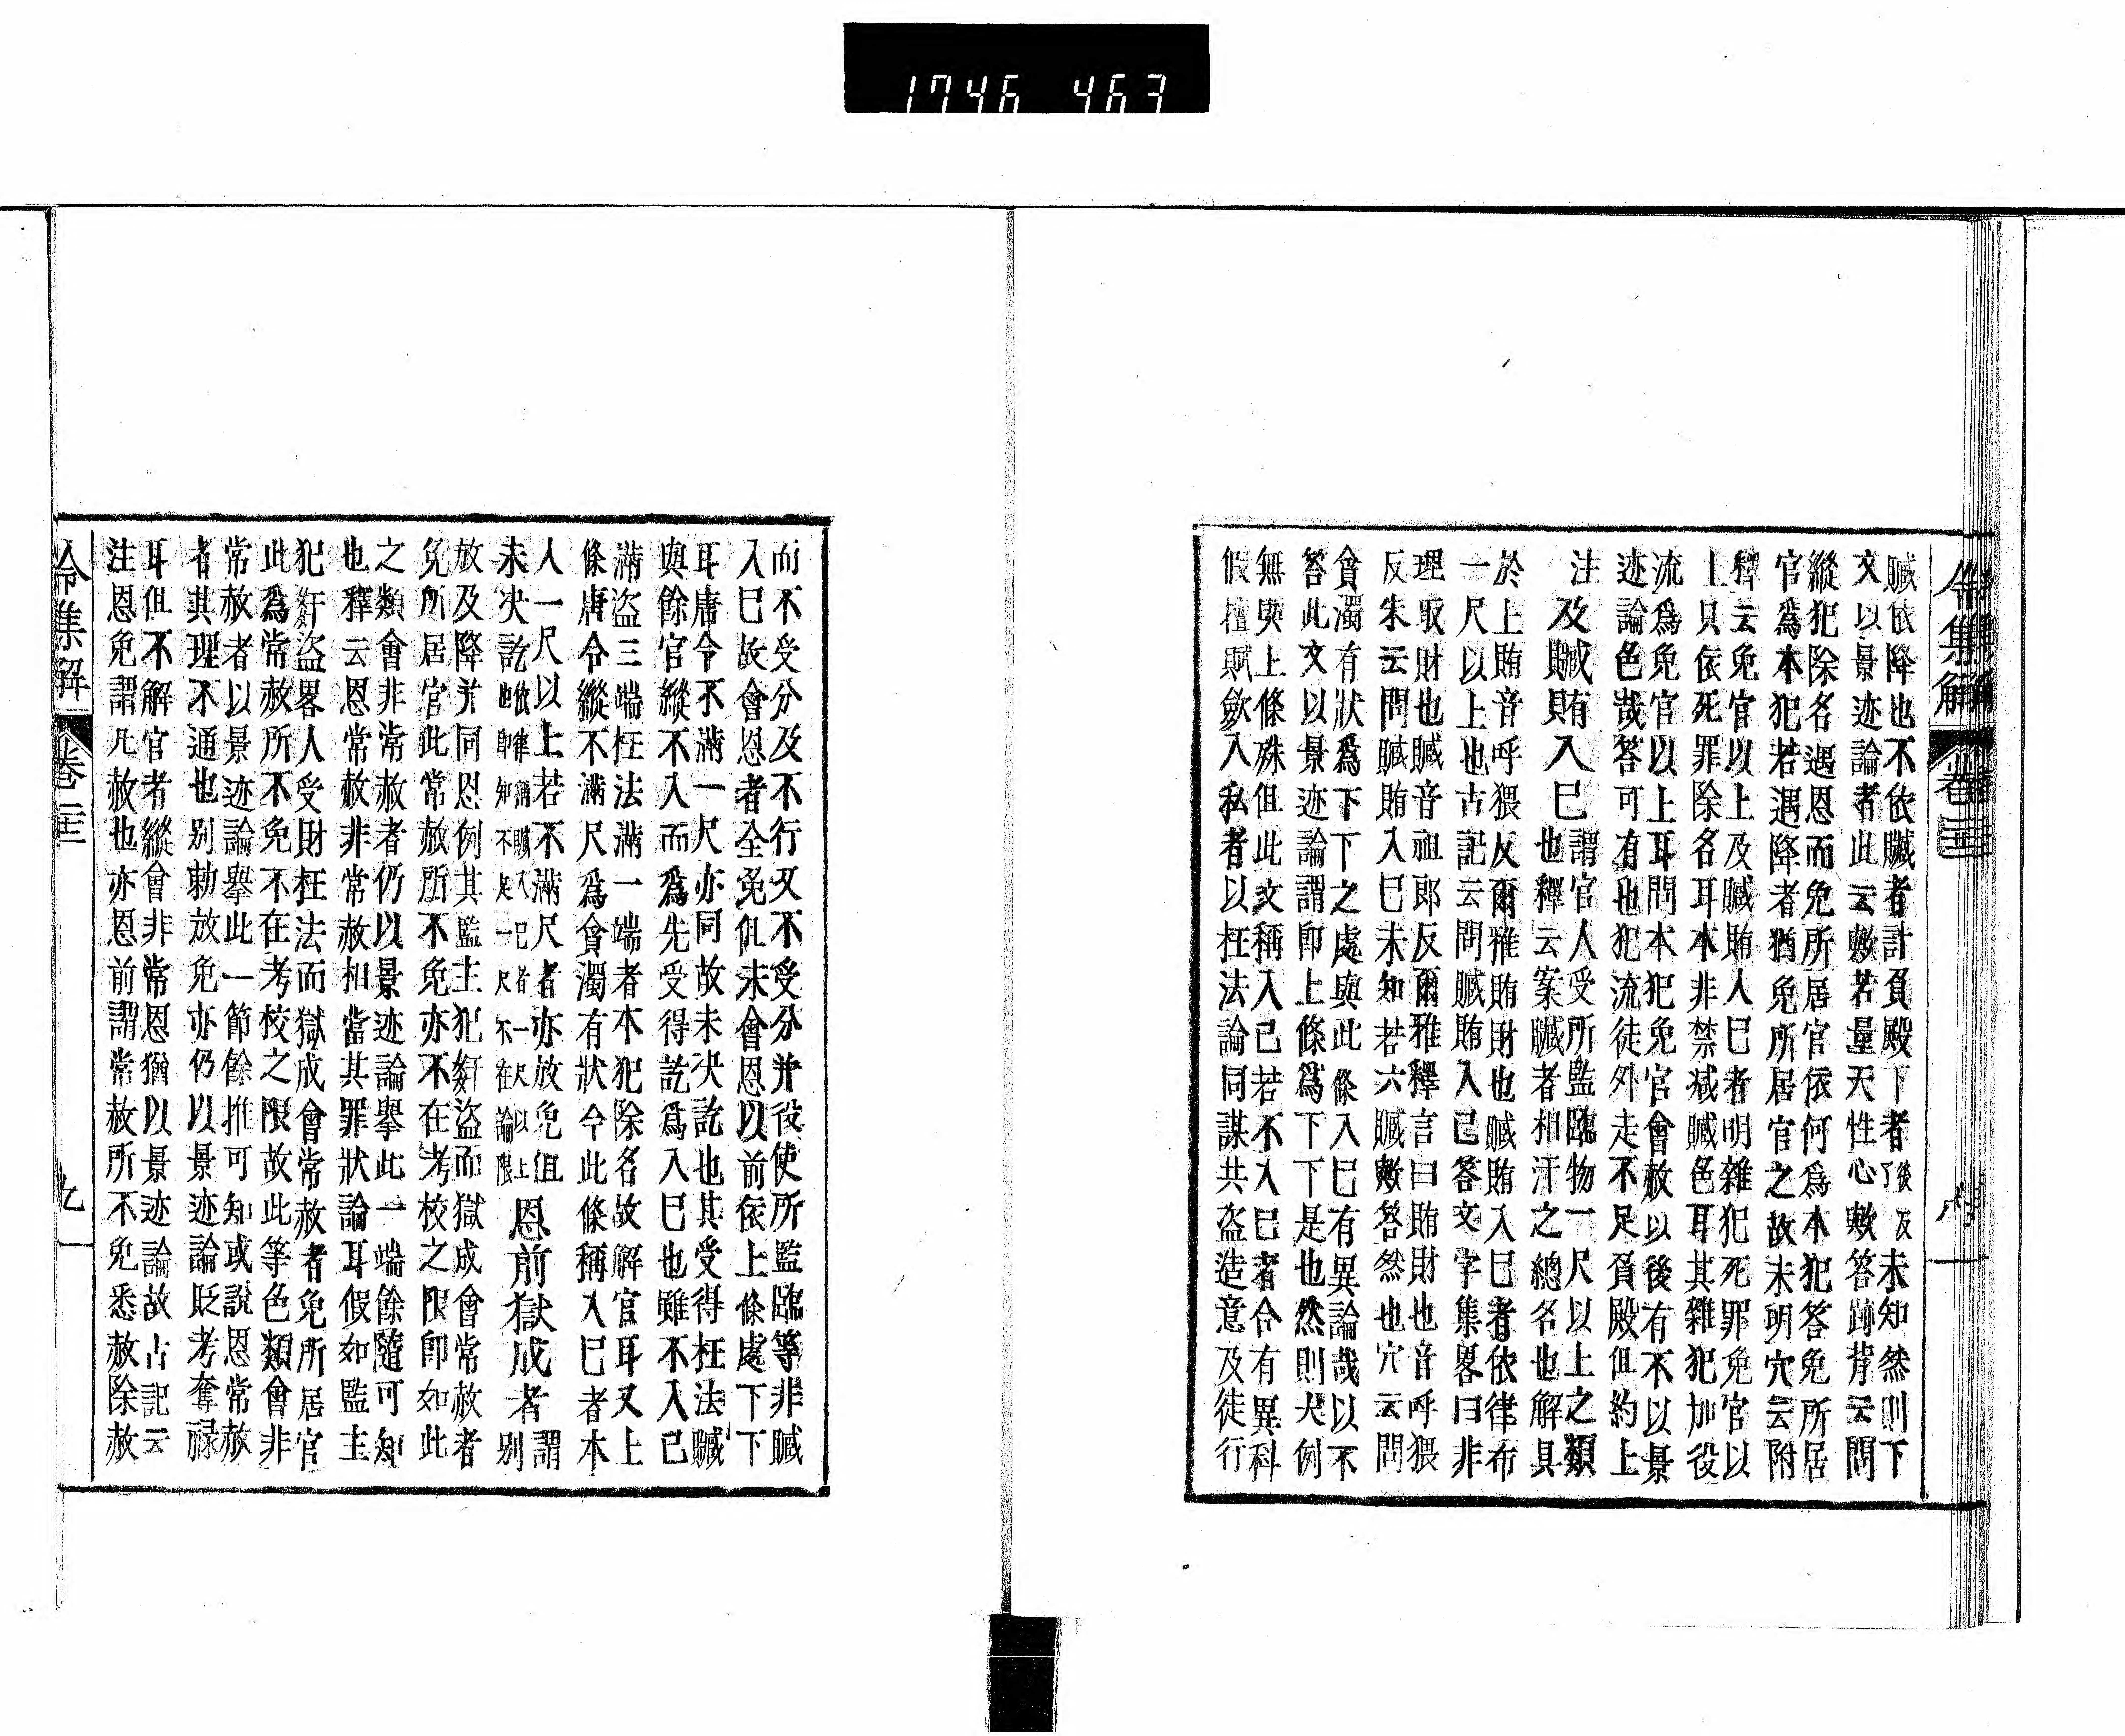 1746 463
令集解 卷二十二
贓依降也不依贓者計負殿下者後反了未知然則下
文以景迹論者此云數若量天性心歟答跡背云問
縱犯除名遇恩而免所居官依何爲本犯答免所居
官爲本犯若遇降者猶免所居官之故未明穴云附
釋云免官以上及贓賄入巳者明雜犯死罪免官以
上只依死罪除名耳本非禁减贓色耳其雜犯加役
流爲免官以上耳問本犯免官會赦以後有不以景
迹論色哉答可有也犯流徒外走不足負殿但約上
注及贓賄入巳謂官人受所監臨物一尺以上之類
及財入巳也釋云案贓者相汗之總名也解具
於上賄音呼猥反爾雅賄財也贓賄入巳者依律布
一尺以上也古記云問贓賄入己答文字集畧曰非
理取財也贓音祖郎反爾雅釋言曰賄財也音呼猥
反朱云問贓賄入巳未知若六贓歟答然也穴云問
貪濁有狀爲下下之處與此條入巳有異論哉以不
答此文以景迹論謂卽上條爲下下是也然則犬例
無與上條殊但此文稱入己若不入巳者合有異科
假擅賦歛入私者以枉法論同謀共盜造意及徒行
而不受分及不行又不受分并役使所監臨等非贓
入巳故會恩者全免但未會恩以前依上條處下下
耳唐令不滿一尺亦同故未决訖也其受得枉法贓
與餘官縱不入而爲先受得訖爲入巳也雖不入己
滿盜三端枉法滿一端者本犯除名故解官耳又上
條唐令縱不滿尺爲貪濁有狀今此條稱入巳者本
人一尺以上若不滿尺者亦放免但
未决訖也依律稱贓入巳者一尺以上卽知不足一尺不在論限恩前獄成者謂別
放及降并同恩例其監主犯姧盜而獄成會常赦者
免所居官此常赦所不免亦不在考校之限卽如此
之類會非常赦者仍以景迹論擧此一端餘隨可知
也釋云恩常赦非常赦相當其罪狀論耳假如監主
犯姧盜畧人受財枉法而獄成會常赦者免所居官
此爲常赦所不免不在考校之限故此等色類會非
常赦者以景迹論擧此一節餘推可知或說恩常赦
者其理不通也別勅放免亦仍以景迹論貶考奪祿
耳但不解官者縱會非常恩猶以景迹論故古記云
注恩免謂凡赦也亦恩前謂常赦所不免悉赦除赦
令集解 卷二十二 九